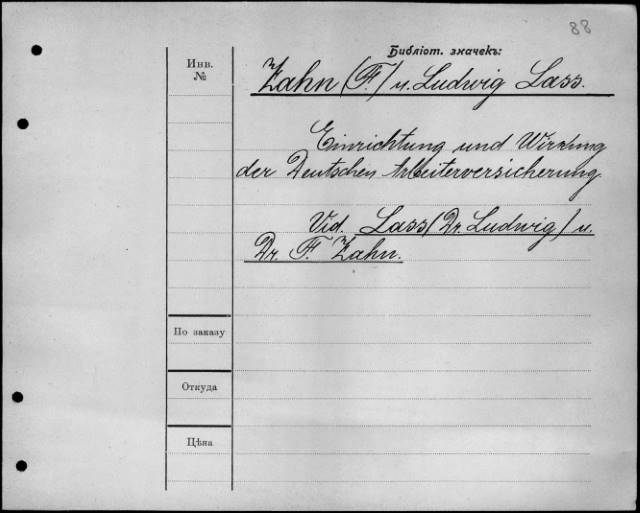 88
Библіот. значекъ:
Инв.
№
Zahn (F.) u. Ludwig Lass.
Einrichtung und Wirkung
der Deutschen Arbeiterversicherung
Vid. Lass (Dr. Ludwig) u.
Dr. F. Zahn.
По заказу
Откуда
Цѣна